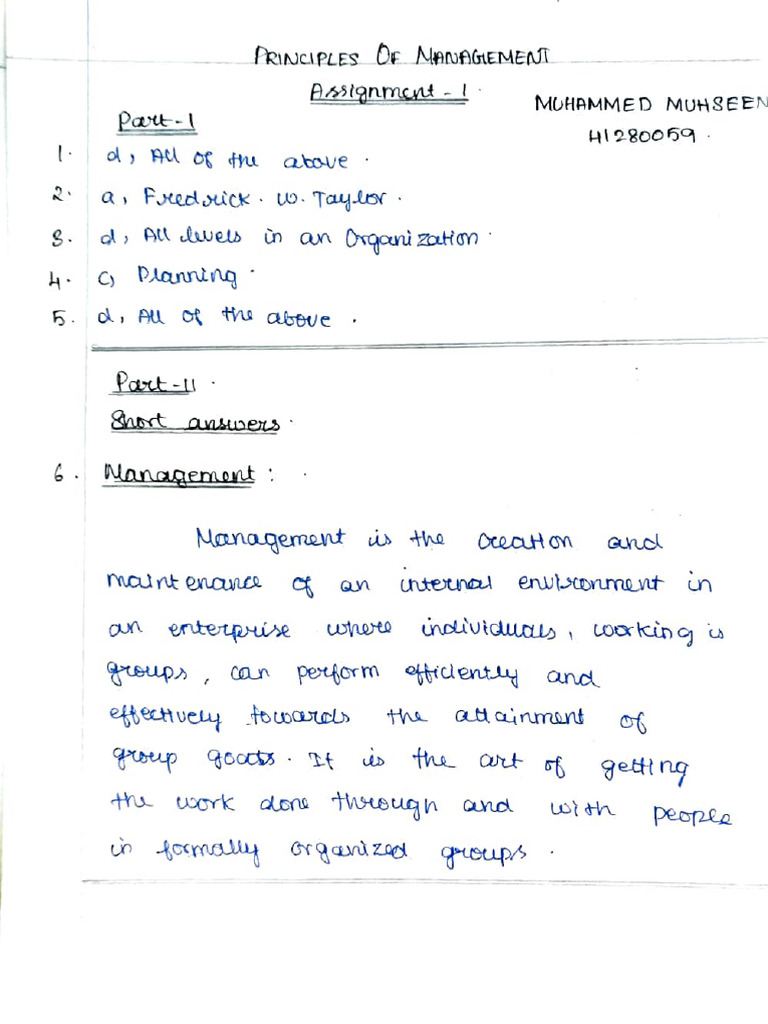 PRINCIPLES OF MANAGEMENT
Assignment - 1.
MUHAMMED MUHSEEN
41280059.
Part-I
1. d, All of the above.
2. a, Fredrick. W. Taylor.
3. d, All levels in an Organization.
4. c, Planning.
5. d, All of the above.
Part-II.
Short answers.
6. Management:
Management is the creation and
maintenance of an internal environment in
an enterprise where individuals, working is
groups, can perform efficiently and
effectively towards the attainment of
group goals. It is the art of getting
the work done through and with people
in formally organized groups.